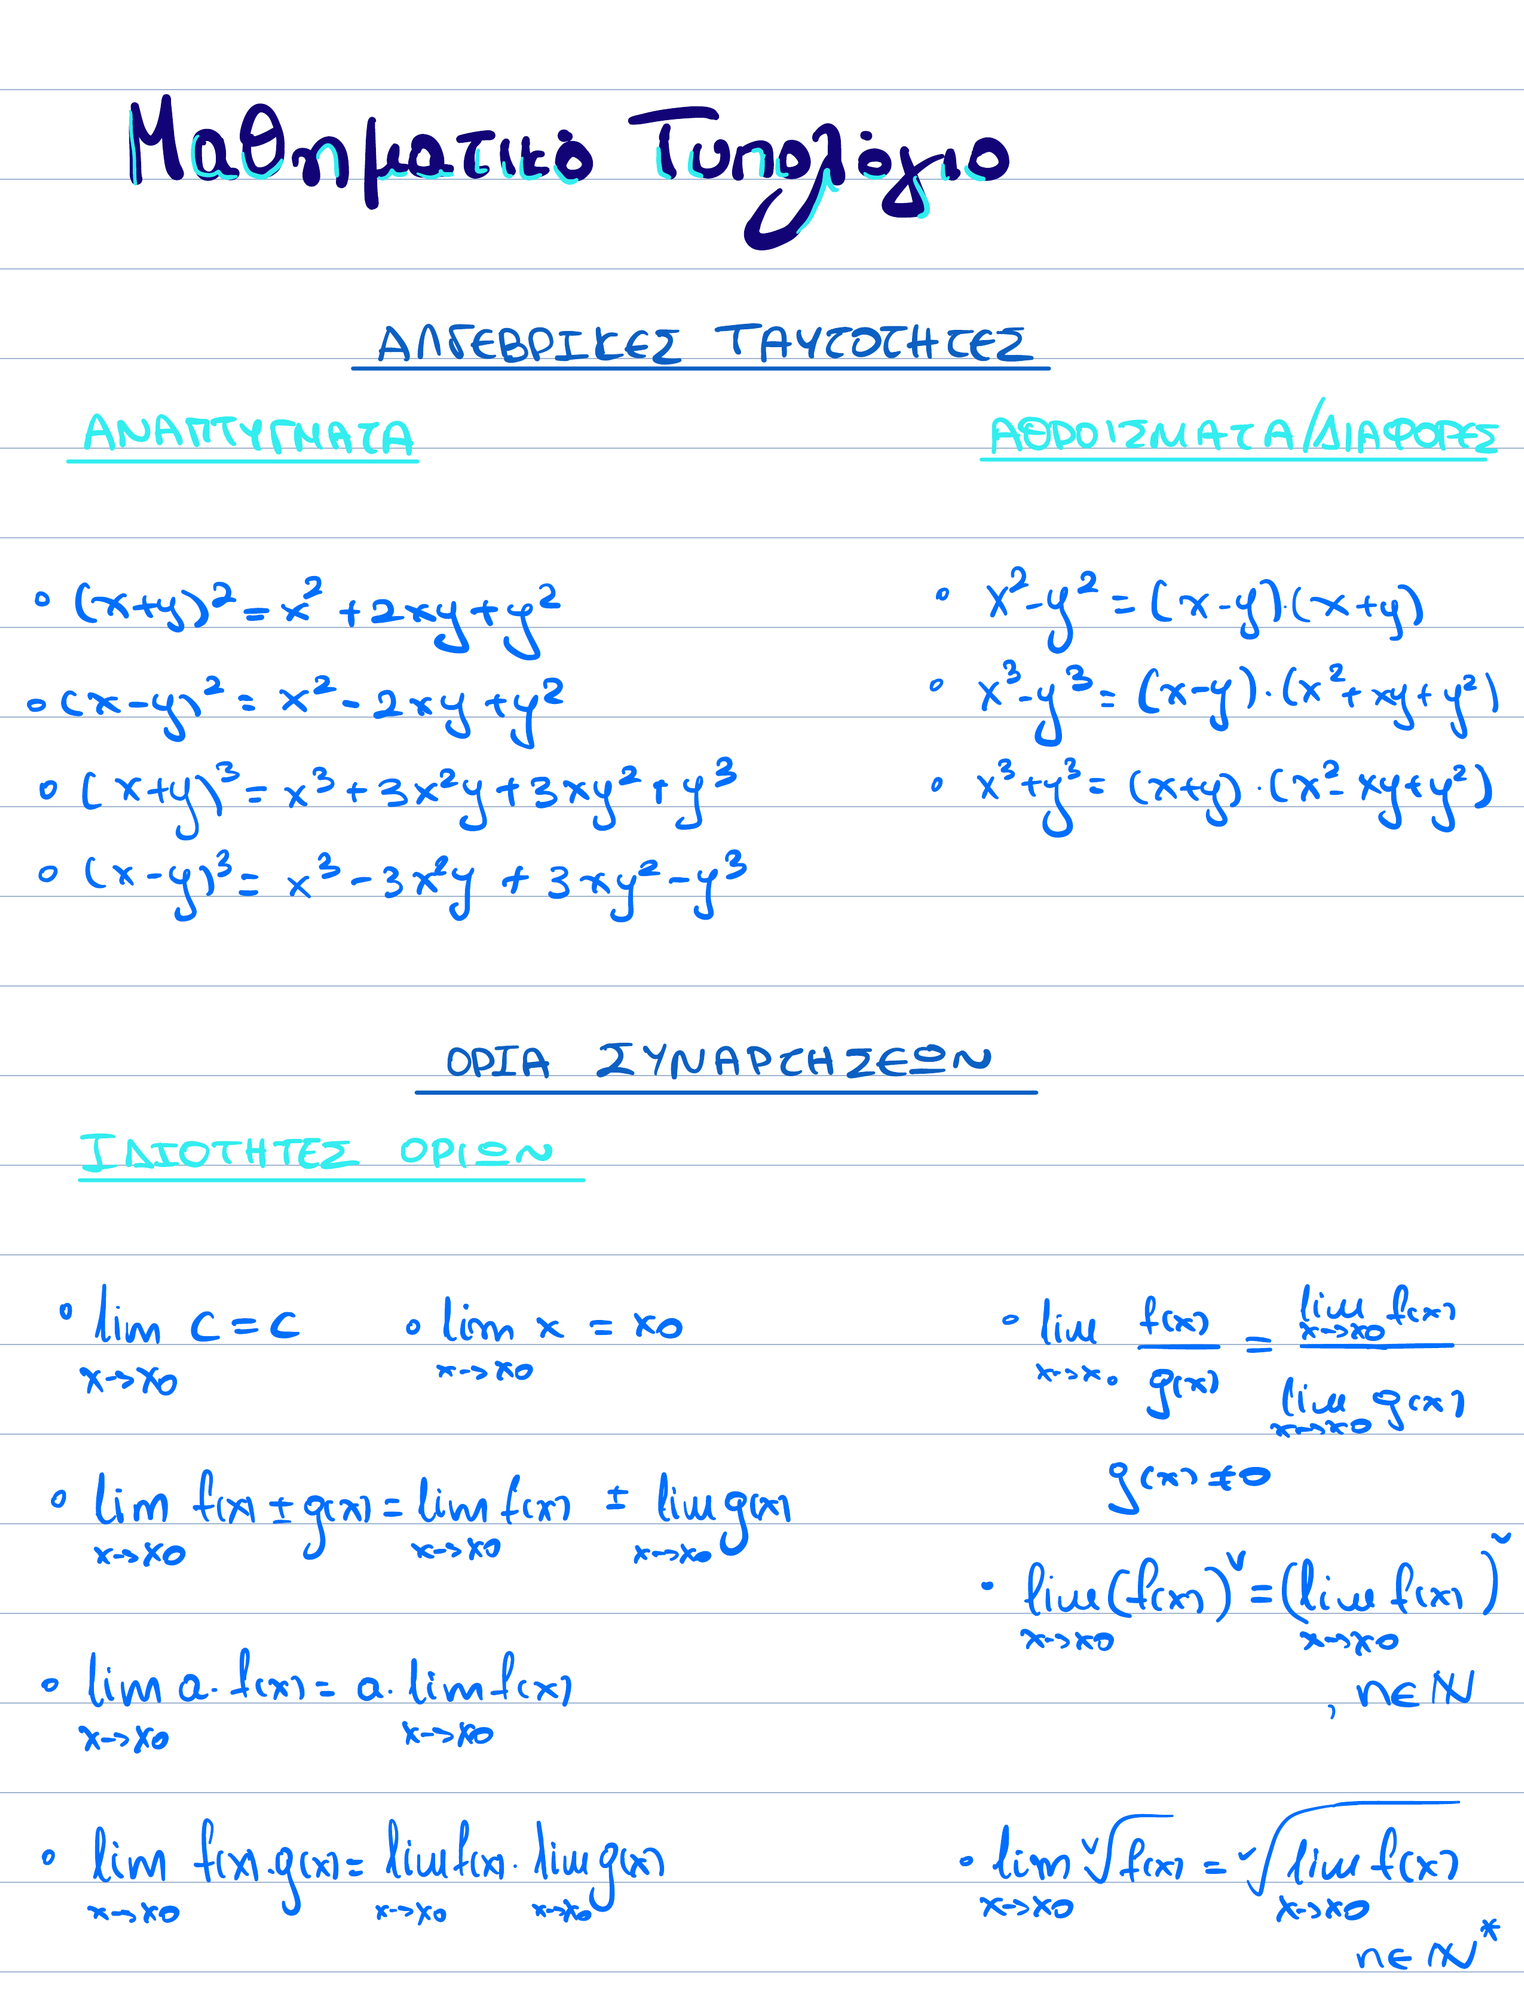 Μαθηματικό Τυπολόγιο
ΑΛΓΕΒΡΙΚΕΣ ΤΑΥΤΟΤΗΤΕΣ
ΑΝΑΠΤΥΓΜΑΤΑ
(x+y)² = x² + 2xy + y²
(x-y)² = x² - 2xy + y²
(x+y)³ = x³ + 3x²y + 3xy² + y³
(x-y)³ = x³ - 3x²y + 3xy² - y³
ΑΘΡΟΙΣΜΑΤΑ/ΔΙΑΦΟΡΕΣ
x² - y² = (x-y)·(x+y)
x³ - y³ = (x-y)·(x² + xy + y²)
x³ + y³ = (x+y)·(x² - xy + y²)
ΟΡΙΑ ΣΥΝΑΡΤΗΣΕΩΝ
ΙΔΙΟΤΗΤΕΣ ΟΡΙΩΝ
lim x→x0 c = c lim x→x0 x = x0
lim x→x0 f(x) ± g(x) = lim x→x0 f(x) ± lim x→x0 g(x)
lim x→x0 a·f(x) = a·lim x→x0 f(x)
lim x→x0 f(x)·g(x) = lim x→x0 f(x)·lim x→x0 g(x)
lim x→x0 f(x)/g(x) = lim x→x0 f(x) / lim x→x0 g(x)
g(x) ≠ 0
lim x→x0 (f(x))^ν = (lim x→x0 f(x))^ν
, n ∈ ℕ
lim x→x0 ν√f(x) = ν√lim x→x0 f(x)
n ∈ ℕ*